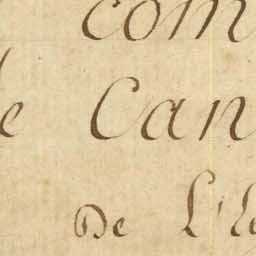 com
e Can
De L'le